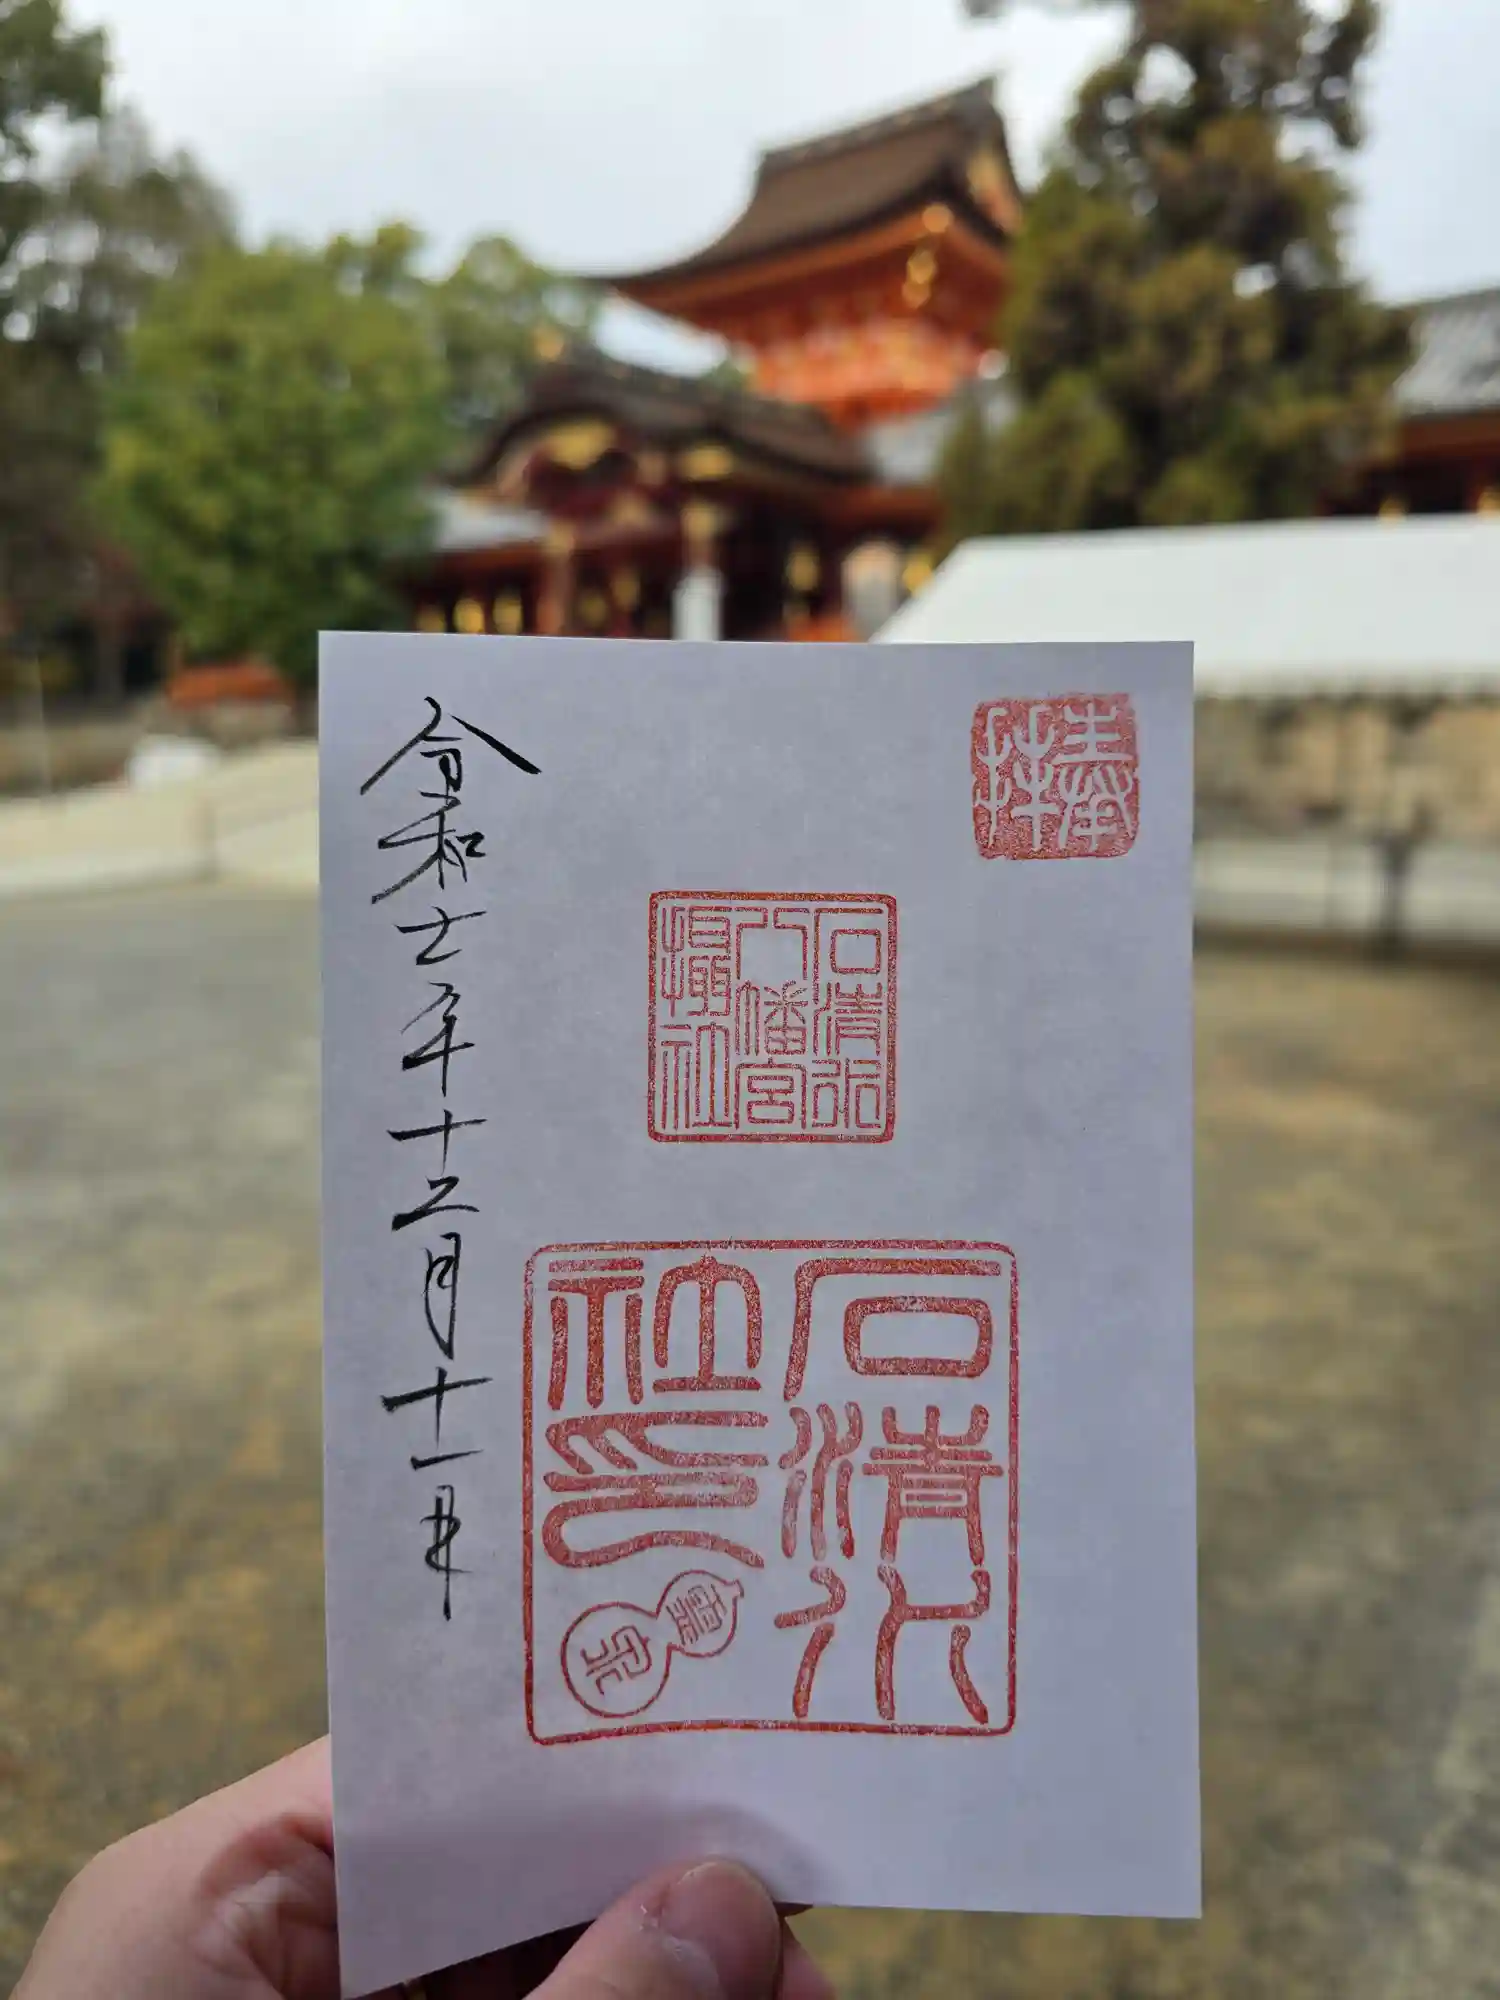 奉拝
石清水
八幡宮
攝社
石清水
社印
霊泉
令和七年十二月十一日